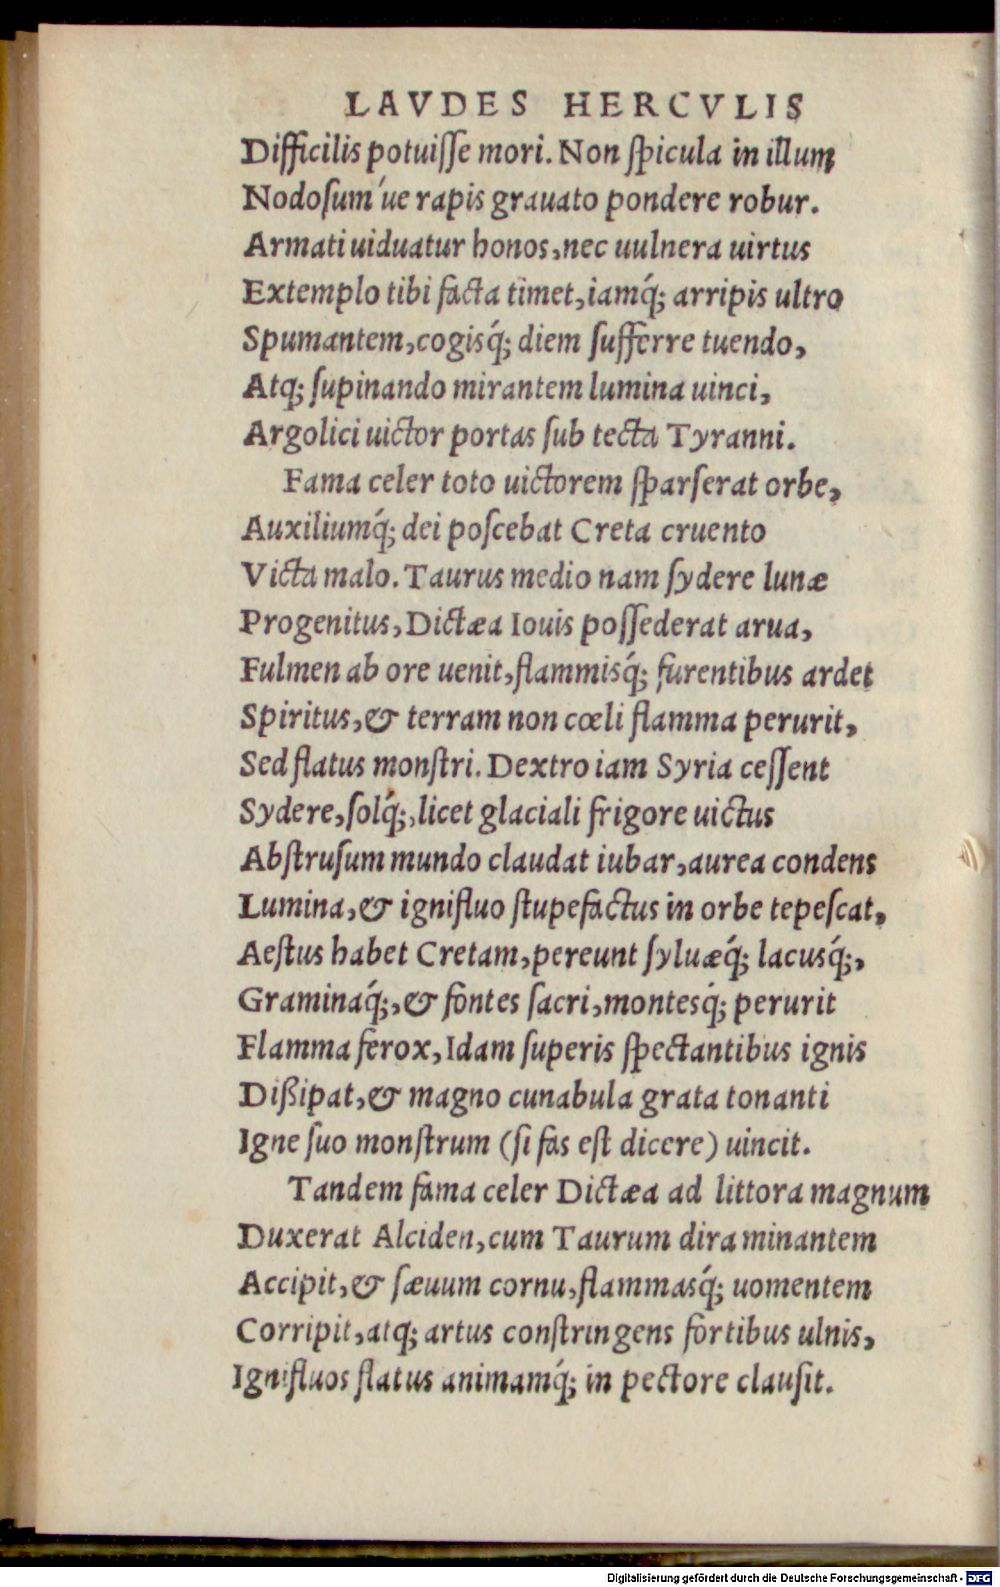 LAVDES HERCVLIS
Difficilis potuiſſe mori. Non ſpicula in illum
Nodoſum´ue rapis grauato pondere robur.
Armati uiduatur honos, nec uulnera uirtus
Extemplo tibi facta timet, iamq́; arripis ultro
Spumantem, cogisq́; diem ſufferre tuendo,
Atq; ſupinando mirantem lumina uinci,
Argolici uictor portas ſub tecta Tyranni.
Fama celer toto uictorem ſparſerat orbe,
Auxiliumq́; dei poſcebat Creta cruento
Victa malo. Taurus medio nam ſydere lunæ
Progenitus, Dictæa Iouis poſſederat arua,
Fulmen ab ore uenit, flammisq́; furentibus ardet
Spiritus, & terram non cœli flamma perurit,
Sed flatus monſtri. Dextro iam Syria ceſſent
Sydere, ſolq́;, licet glaciali frigore uictus
Abſtruſum mundo claudat iubar, aurea condens
Lumina, & ignifluo ſtupefactus in orbe tepeſcat,
Aeſtus habet Cretam, pereunt ſyluæq́; lacusq́;,
Graminaq́;, & fontes ſacri, montesq́; perurit
Flamma ferox, Idam ſuperis ſpectantibus ignis
Dißipat, & magno cunabula grata tonanti
Igne ſuo monſtrum (ſi fas eſt dicere) uincit.
Tandem fama celer Dictæa ad littora magnum
Duxerat Alciden, cum Taurum dira minantem
Accipit, & ſæuum cornu, flammasq́; uomentem
Corripit, atq; artus conſtringens fortibus ulnis,
Ignifluos flatus animamq́; in pectore clauſit.
Digitalisierung gefördert durch die Deutsche Forschungsgemeinschaft - DFG